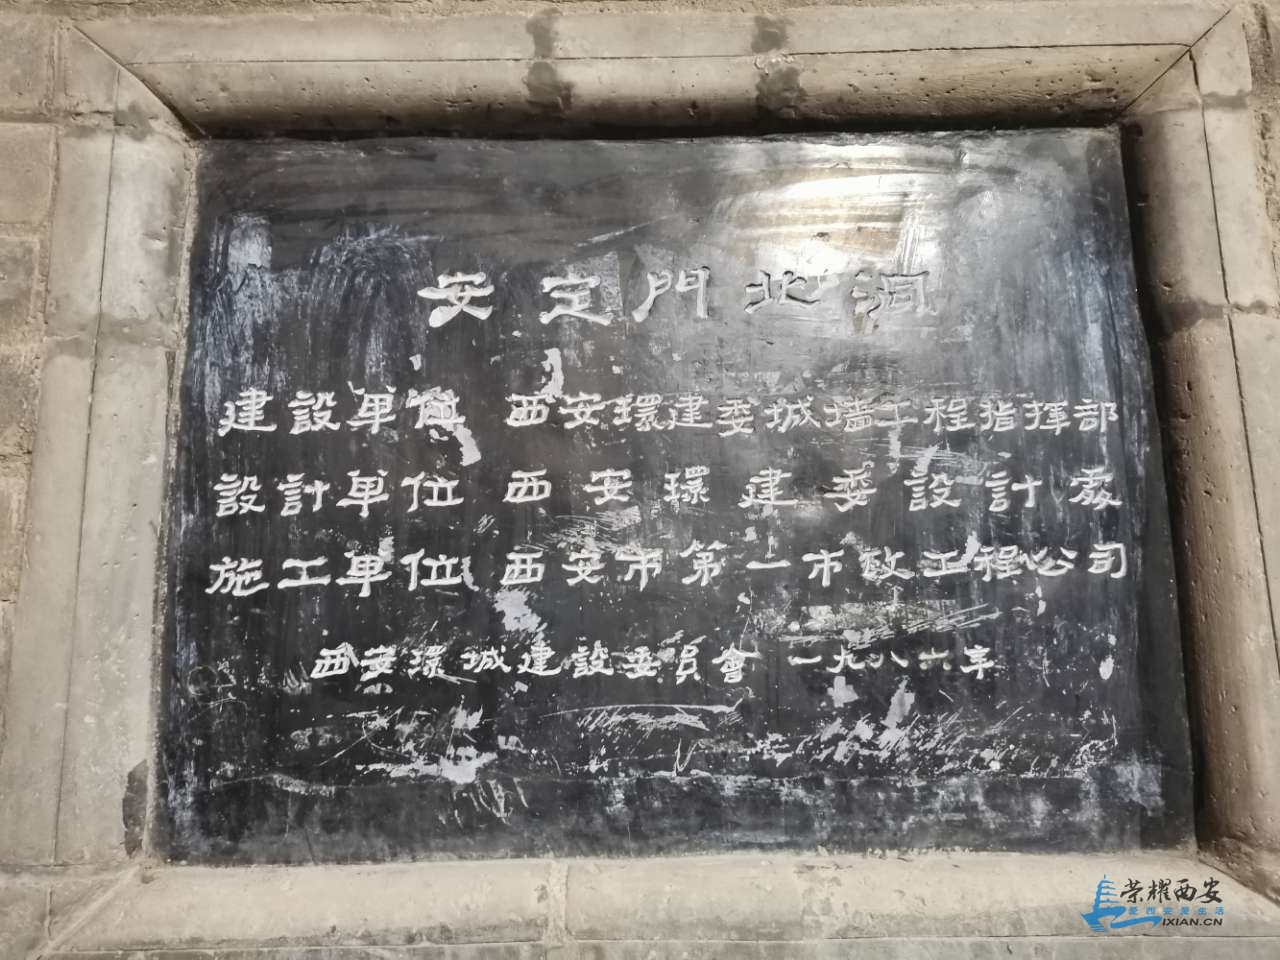 安定門北洞
建設單位 西安環建委城墙工程指揮部
設計單位 西安環建委設計處
施工單位 西安市第一市政工程公司
西安環城建設委員會 一九八六年
荣耀西安
爱西安爱生活
IXIAN.CN